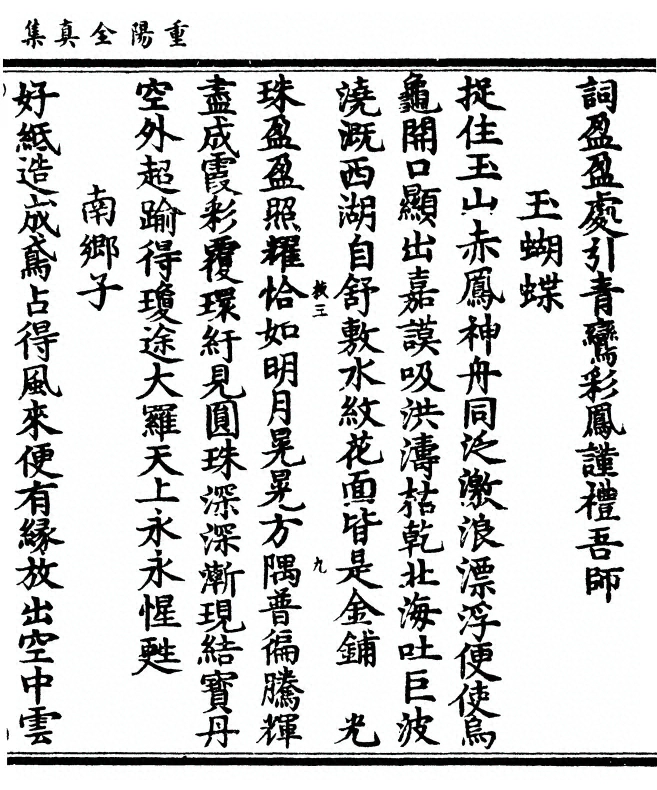 重陽全真集
詞盈盈處引青鸞彩鳳謹禮吾師
玉蝴蝶
捉住玉山赤鳳神舟同泛激浪漂浮便使烏
龜開口顯出嘉謨吸洪濤枯乾北海吐巨波
澆溉西湖自舒敷水紋花面皆是金鋪　光
教三　九
珠盈盈照耀恰如明月晃晃方隅普徧騰輝
盡成霞彩覆環紆見圓珠深深漸現結寶丹
空外超踰得瓊途大羅天上永永惺甦
南鄉子
好紙造成鳶占得風來便有緣放出空中雲